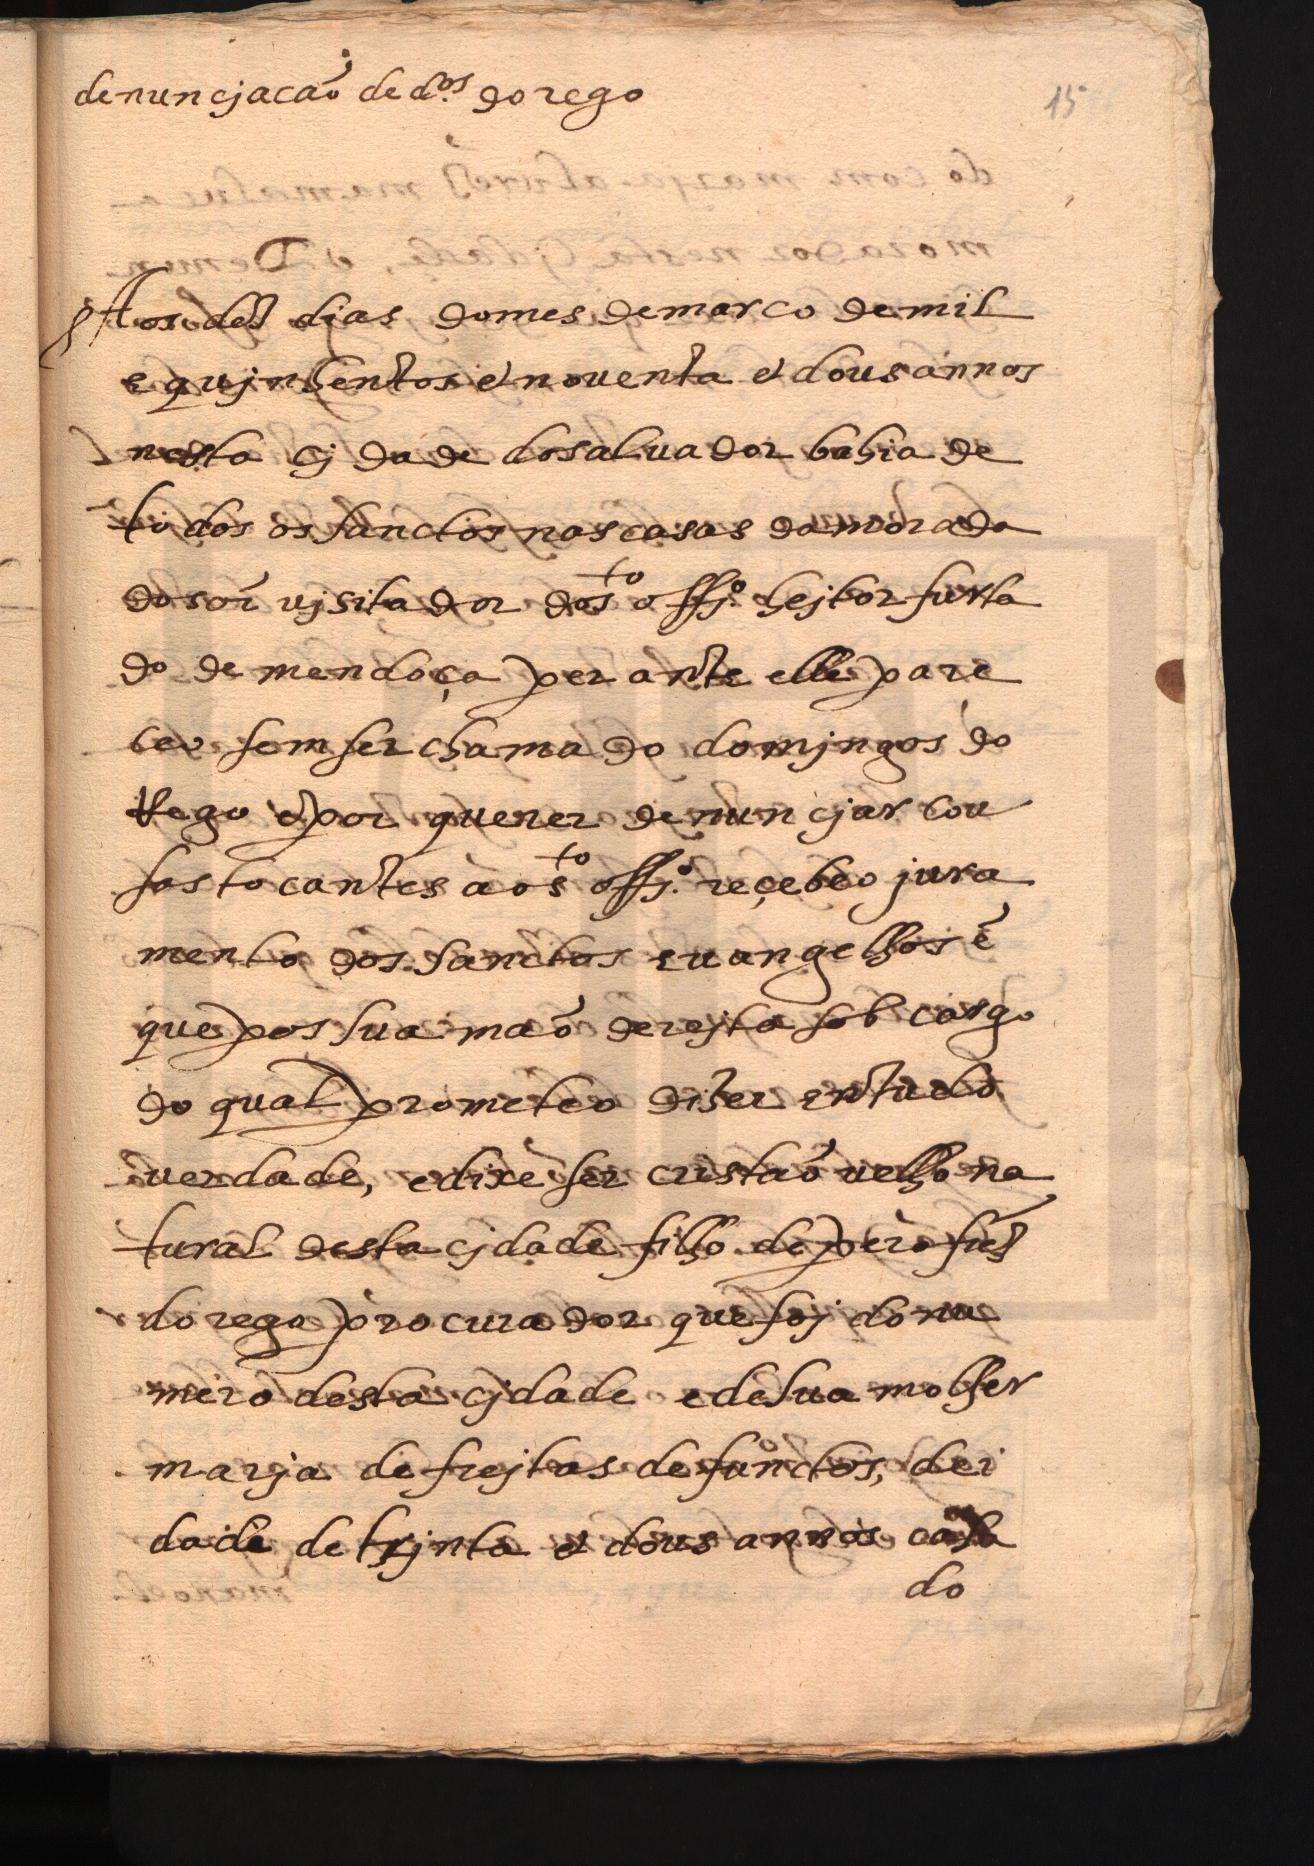 denuncjacaõ de d.os do rego
15
Aos des dias do mes de marco de mil
e qujnhentos e nouenta e dous annos
nesta cjdade do saluador bahia de
todos os sanctos nas casas da morada
do sõr vjsitador do s.to offj.o hejtor furta
do de mendoça perante elle pare
ceo sem ser chamado domjngos do
Rego e por querer denuncjar cou
sas tocantes a o s.to offj.o reçebeo jura
mento dos sanctos euangelhos ẽ
que pos sua maõ derejta sob cargo
do qual prometeo diser em tudo
uerdade, e dixe ser cristaõ uelho na
tural desta cjdade filho de pero frẽs
do rego procurador que foj do nu
mero desta cjdade e de sua molher
marja de frejtas defunctos, de i
dade de trjnta e dous annos casa
do